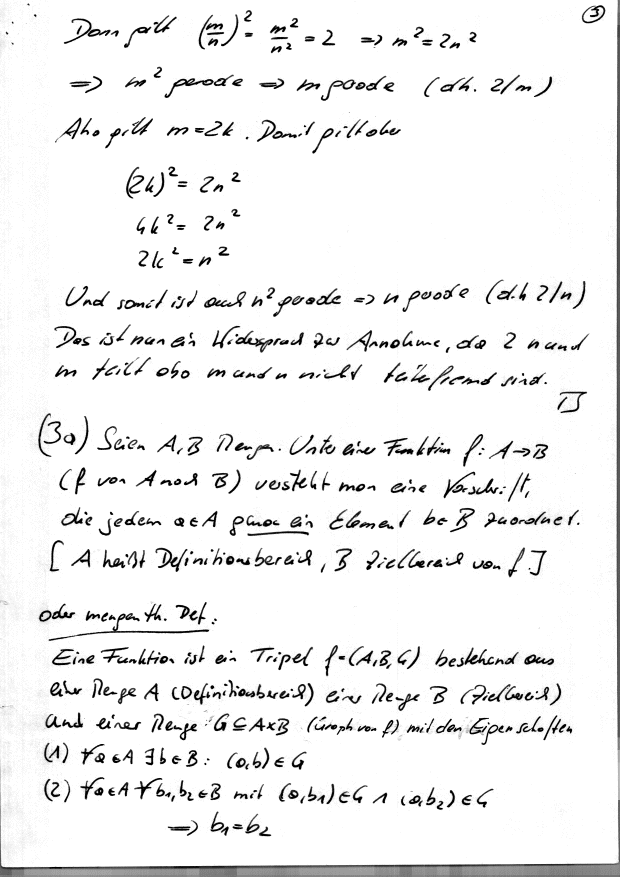 ③
Dann gilt (m/n)² = m²/n² = 2 => m² = 2n²
=> m² gerade => m gerade (dh. 2/m)
Also gilt m=2k. Damit gilt aber
(2k)² = 2n²
4k² = 2n²
2k² = n²
Und somit ist auch n² gerade => n gerade (d.h 2/n)
Das ist nun ein Widerspruch zur Annahme, da 2 n und
m teilt also m und n nicht teilerfremd sind.
(3a) Seien A,B Mengen. Unter einer Funktion f: A→B
(f von A nach B) versteht man eine Vorschrift,
die jedem a∈A genau ein Element b∈B zuordnet.
[ A heißt Definitionsbereich, B Zielbereich von f. ]
oder mengenth. Def.:
Eine Funktion ist ein Tripel f=(A,B,G) bestehend aus
einer Menge A (Definitionsbereich) einer Menge B (Zielbereich)
und einer Menge G⊆A×B (Graph von f) mit den Eigenschaften
(1) ∀a∈A ∃b∈B: (a,b)∈G
(2) ∀a∈A ∀b₁,b₂∈B mit (a,b₁)∈G ∧ (a,b₂)∈G
=> b₁=b₂